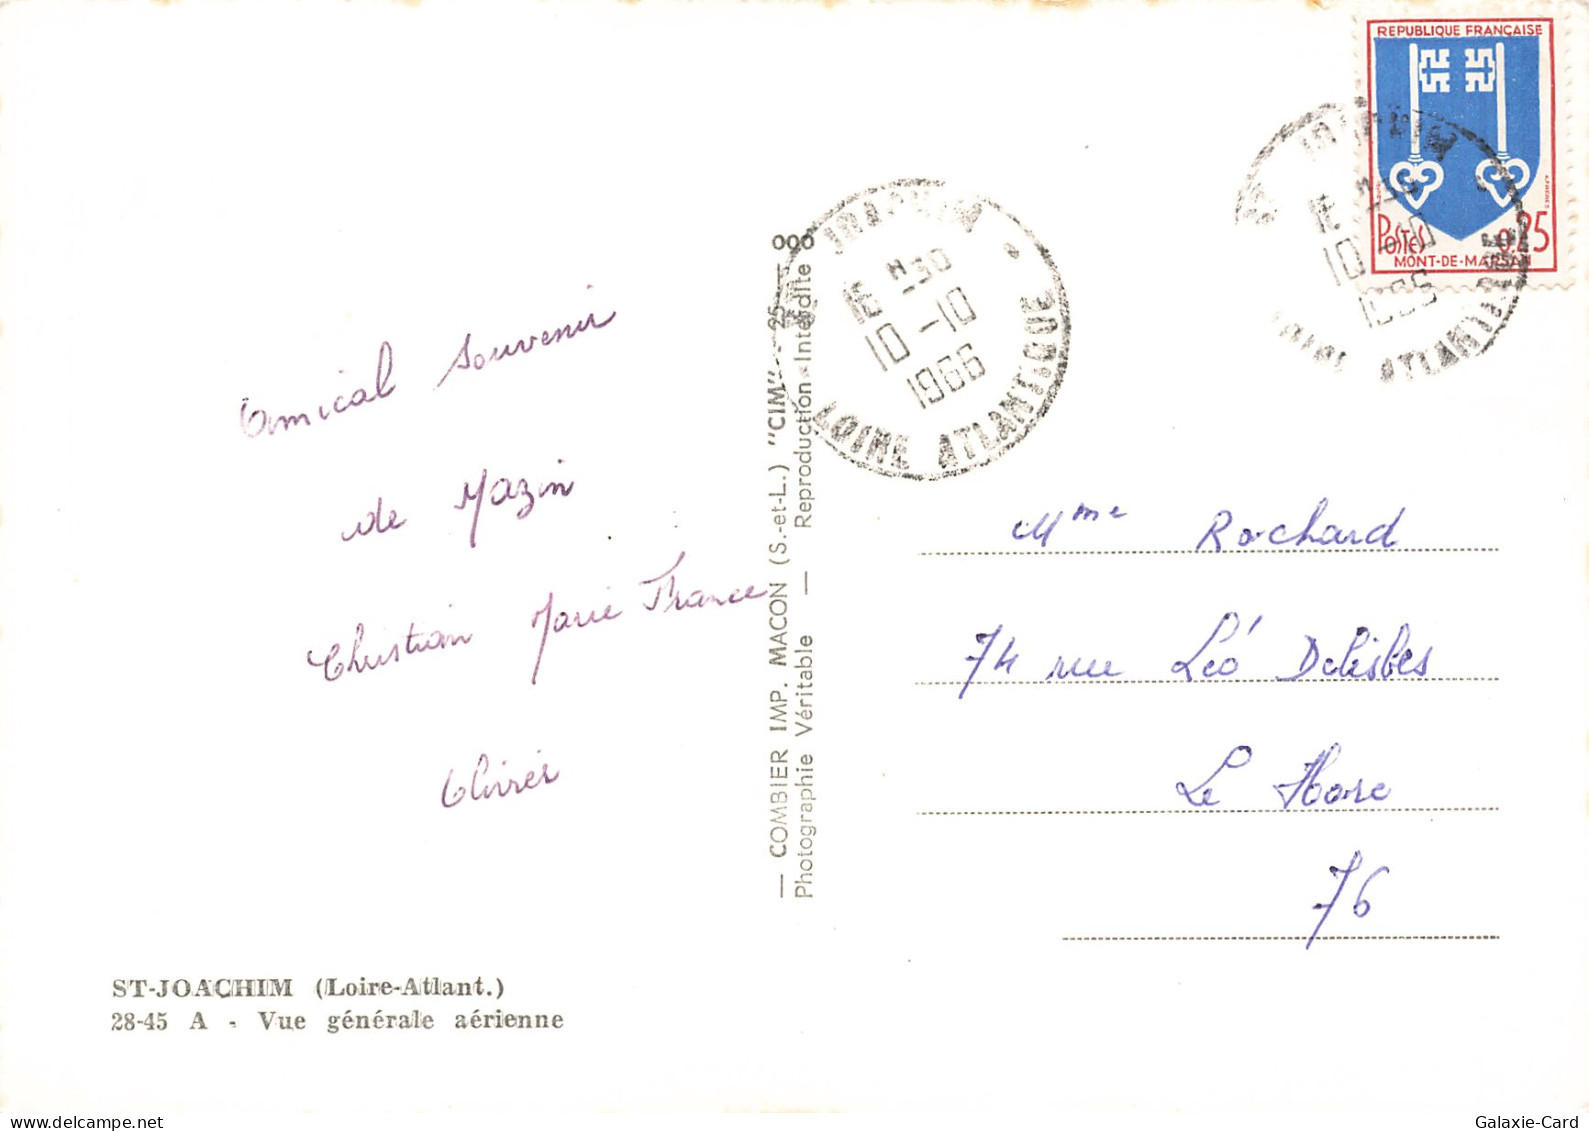 Amical souvenir
de Mazin
Christian Marie France
Olivier
ST-JOACHIM (Loire-Atlant.)
28-45 A - Vue générale aérienne
— COMBIER IMP. MACON (S.-et-L.) "CIM"
Photographie Véritable — Reproduction Interdite
JOACHIM
16 H30
10-10
1966
LOIRE ATLANTIQUE
REPUBLIQUE FRANÇAISE
POSTES 0,25
MONT-DE-MARSAN
JOACHIM
16 H30
10-10
1966
LOIRE ATLANTIQUE
Mme Rochard
74 rue Léo Delisbes
Le Havre
76
Galaxie-Card